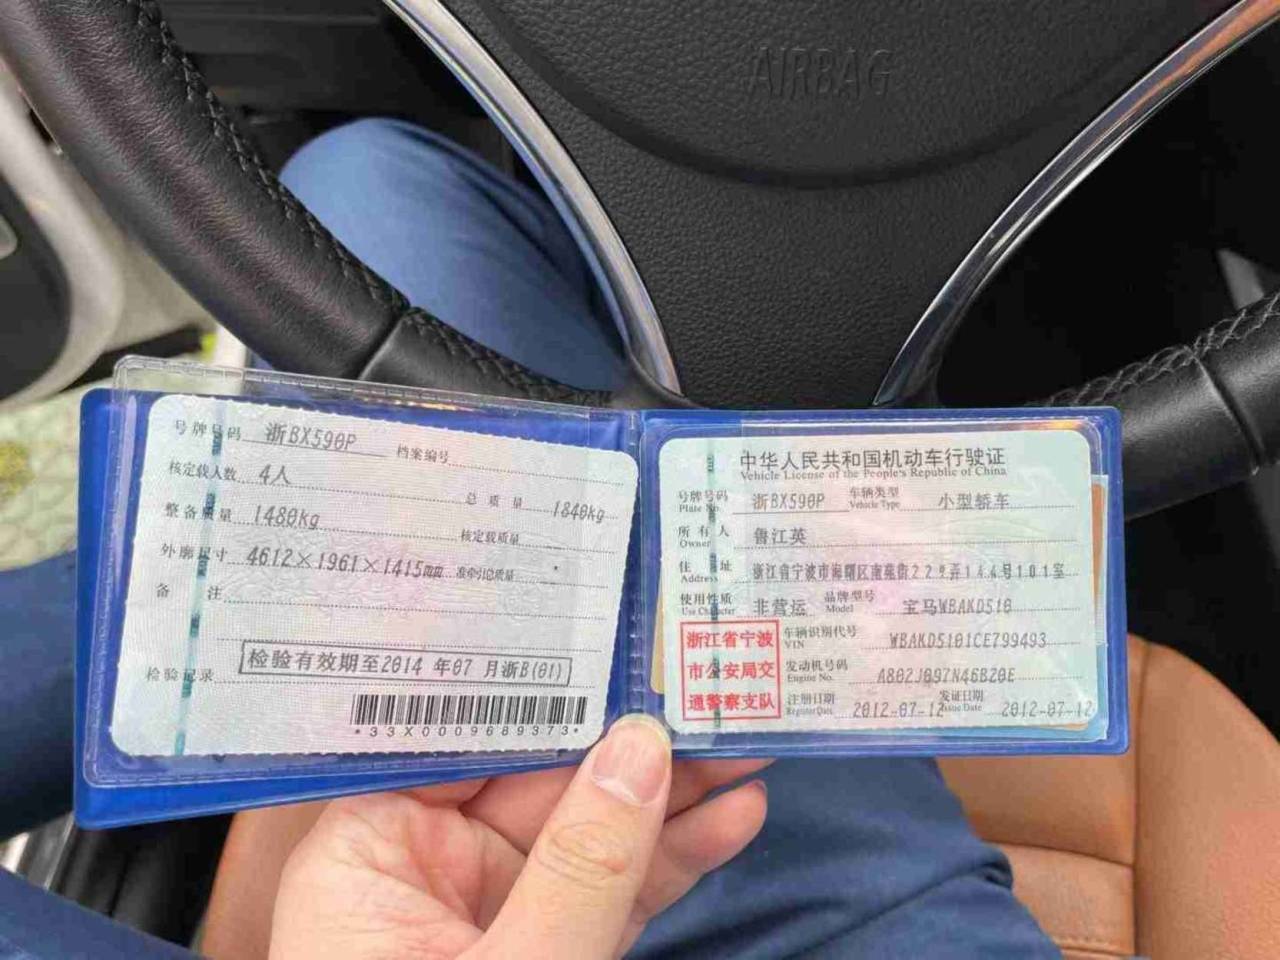 AIRBAG
号牌号码 浙BX590P 档案编号
核定载人数 4人 总质量 1840kg
整备质量 1480kg 核定载质量
外廓尺寸 4612×1961×1415mm 准牵引总质量
备注
检验记录 检验有效期至2014年07月浙B(01)
*33X0009689373*
中华人民共和国机动车行驶证
Vehicle License of the People's Republic of China
号牌号码 浙BX590P 车辆类型 小型轿车
Plate No. Vehicle Type
所有人 鲁江英
Owner
住址 浙江省宁波市海曙区南苑街229弄144号101室
Address
使用性质 非营运 品牌型号 宝马WBAKD510
Use Character Model
浙江省宁波
市公安局交
通警察支队
车辆识别代号 WBAKD5101CE799493
VIN
发动机号码 A802J097N46B20E
Engine No.
注册日期 2012-07-12 发证日期 2012-07-12
Register Date Issue Date